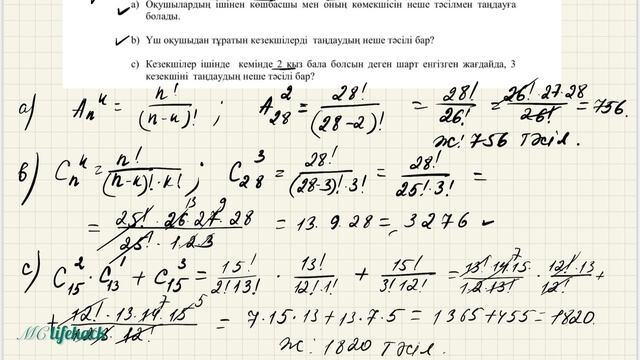 a) Оқушылардың ішінен көшбасшы мен оның көмекшісін неше тәсілмен таңдауға
болады.
b) Үш оқушыдан тұратын кезекшілерді таңдаудың неше тәсілі бар?
c) Кезекшілер ішінде кемінде 2 қыз бала болсын деген шарт енгізген жағдайда, 3
кезекшіні таңдаудың неше тәсілі бар?
a) Aₙᵏ = n!/(n-к)! ; A₂₈² = 28!/(28-2)! = 28!/26! = 26!·27·28/26! = 756.
Ж: 756 тәсіл.
в) Cₙᵏ = n!/(n-к)!·к! ; C₂₈³ = 28!/(28-3)!·3! = 28!/25!·3! =
= 25!·26·27·28/25!·1·2·3 = 13·9·28 = 3276
c) C₁₅²·C₁₃¹ + C₁₅³ = 15!/2!13! · 13!/12!·1! + 15!/3!12! = 13!·14·15/1·2·13! · 12!·13/12! +
+ 12!·13·14·15/1·2·3·12! = 7·15·13+13·7·5 = 1365+455 = 1820.
Ж: 1820 тәсіл.
MC lifehack